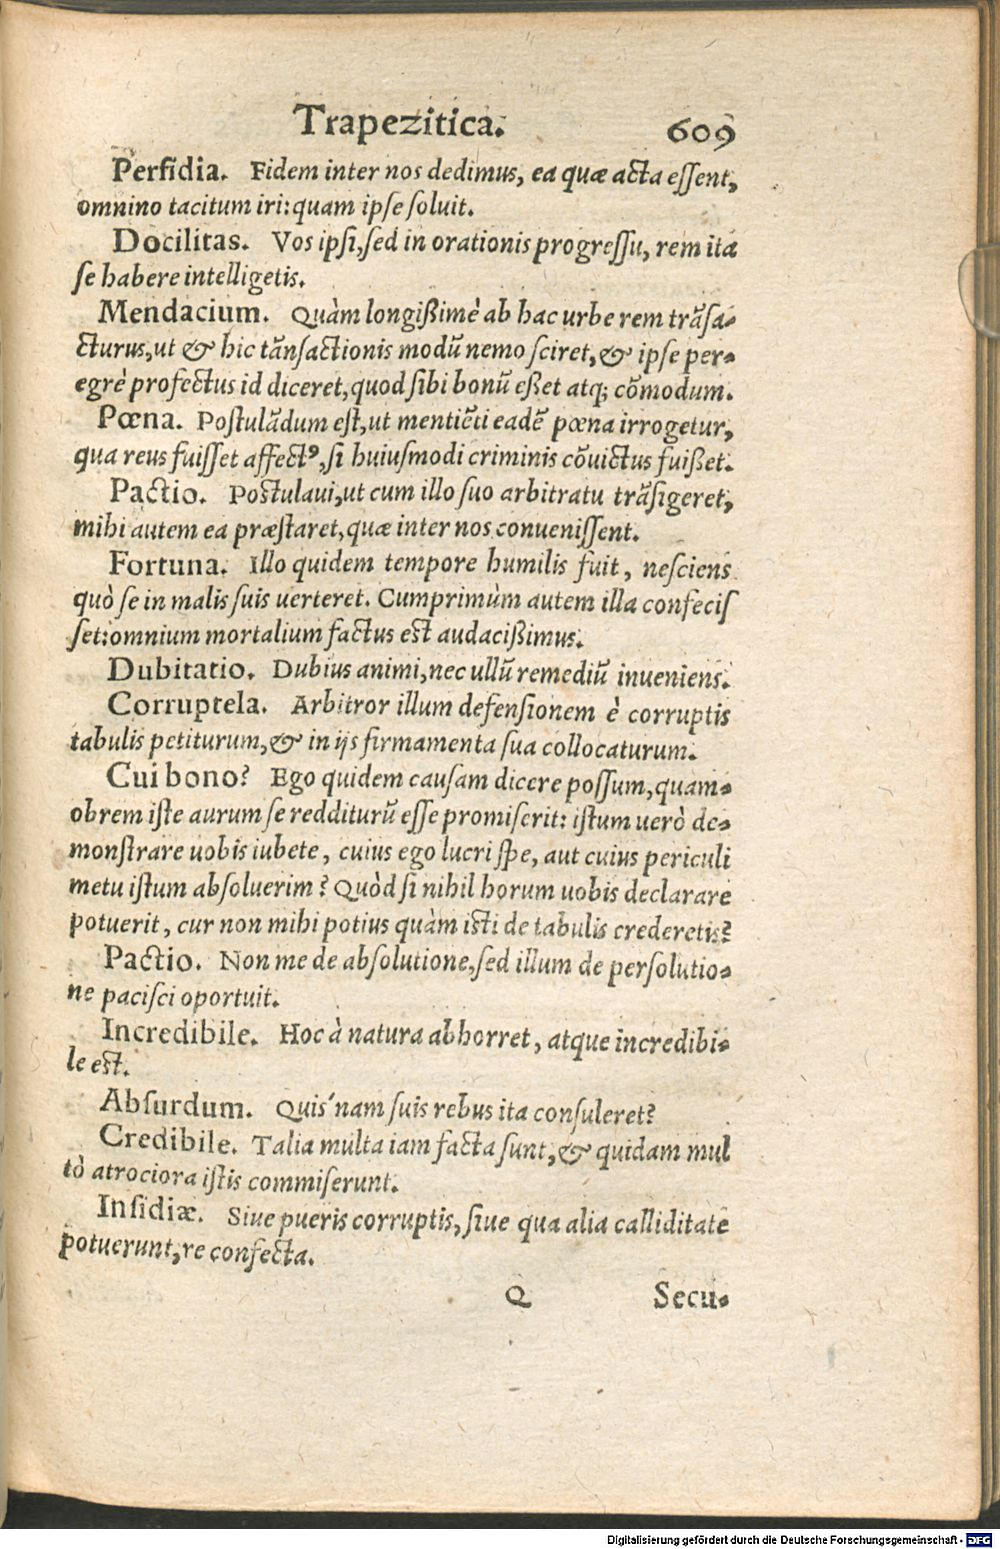 Trapezitica. 609
Perfidia. Fidem inter nos dedimus, ea quæ acta eſſent,
omnino tacitum iri: quam ipſe ſoluit.
Docilitas. Vos ipſi, ſed in orationis progreſſu, rem ita
ſe habere intelligetis.
Mendacium. Quàm longißimè ab hac urbe rem trãſa-
cturus, ut & hic tãnſactionis modũ nemo ſciret, & ipſe per-
egrè profectus id diceret, quod ſibi bonũ eßet atq; cõmodum.
Pœna. Poſtulãdum eſt, ut mentiẽti eadẽ pœna irrogetur,
qua reus fuiſſet affectꝰ, ſi huiuſmodi criminis cõuictus fuißet.
Pactio. Poſtulaui, ut cum illo ſuo arbitratu trãſigeret,
mihi autem ea præſtaret, quæ inter nos conueniſſent.
Fortuna. Illo quidem tempore humilis fuit, neſciens
quò ſe in malis ſuis uerteret. Cumprimùm autem illa confeciſ
ſet: omnium mortalium factus eſt audacißimus.
Dubitatio. Dubius animi, nec ullũ remediũ inueniens.
Corruptela. Arbitror illum defenſionem è corruptis
tabulis petiturum, & in ijs firmamenta ſua collocaturum.
Cui bono? Ego quidem cauſam dicere poſſum, quam-
obrem iſte aurum ſe redditurũ eſſe promiſerit: iſtum uerò de-
monſtrare uobis iubete, cuius ego lucri ſpe, aut cuius periculi
metu iſtum abſoluerim? Quòd ſi nihil horum uobis declarare
potuerit, cur non mihi potius quàm iſti de tabulis crederetis?
Pactio. Non me de abſolutione, ſed illum de perſolutio-
ne paciſci oportuit.
Incredibile. Hoc à natura abhorret, atque incredibi-
le eſt.
Abſurdum. Quis'nam ſuis rebus ita conſuleret?
Credibile. Talia multa iam facta ſunt, & quidam mul
tò atrociora iſtis commiſerunt.
Inſidiæ. Siue pueris corruptis, ſiue qua alia calliditate
potuerunt, re confecta.
Q Secu-
Digitalisierung gefördert durch die Deutsche Forschungsgemeinschaft - DFG